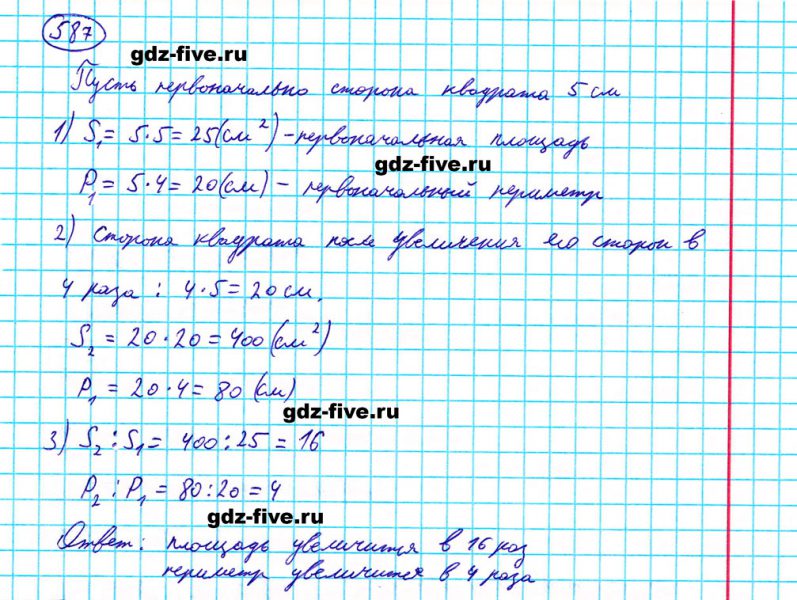 587
gdz-five.ru
Пусть первоначально сторона квадрата 5 см
1) S₁ = 5·5 = 25 (см²) - первоначальная площадь
gdz-five.ru
P₁ = 5·4 = 20 (см) - первоначальный периметр
2) Сторона квадрата после увеличения его сторон в
4 раза : 4·5 = 20 см.
S₂ = 20·20 = 400 (см²)
P₁ = 20·4 = 80 (см)
gdz-five.ru
3) S₂ : S₁ = 400 : 25 = 16
P₂ : P₁ = 80 : 20 = 4
gdz-five.ru
Ответ: площадь увеличится в 16 раз
периметр увеличится в 4 раза